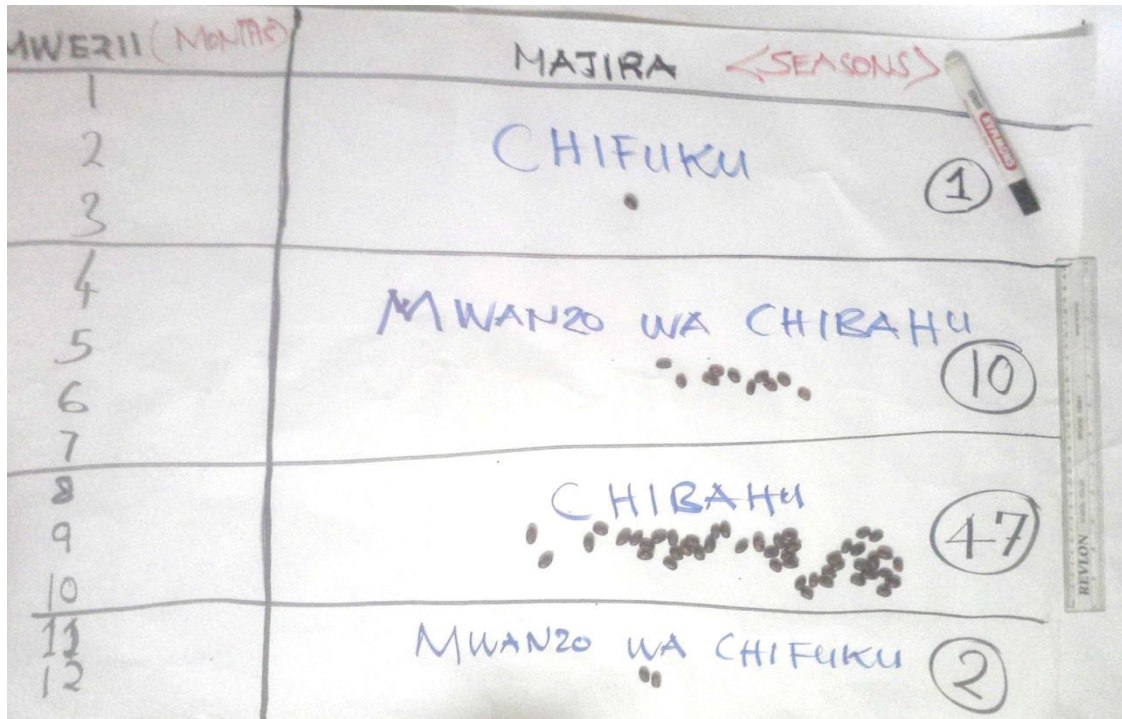 MWEZII (MONTHS)
MAJIRA <SEASONS>
1
2
3
CHIFUKU
1
4
5
6
7
MWANZO WA CHIBAHU
10
8
9
10
CHIBAHU
47
11
12
MWANZO WA CHIFUKU
2
REVLON